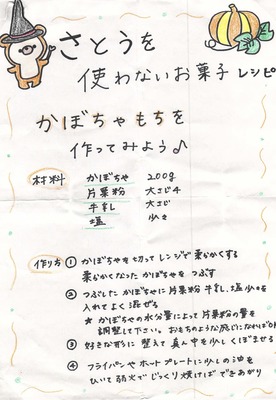 さとうを
使わないお菓子レシピ
かぼちゃもちを
作ってみよう♪
材料 かぼちゃ 200g
片栗粉 大さじ4
牛乳 大さじ
塩 少々
作り方 ① かぼちゃを切ってレンジで柔かくする
柔かくなったかぼちゃをつぶす
② つぶしたかぼちゃに片栗粉 牛乳、塩少々を
入れてよく混ぜる
★ かぼちゃの水分量によって片栗粉の量を
調整して下さい。おもちのような感じになればOK
③ 好きな形に整えて真ん中を少しくぼませる
④ フライパンやホットプレートに少しの油を
ひいて弱火でじっくり焼けばできあがり